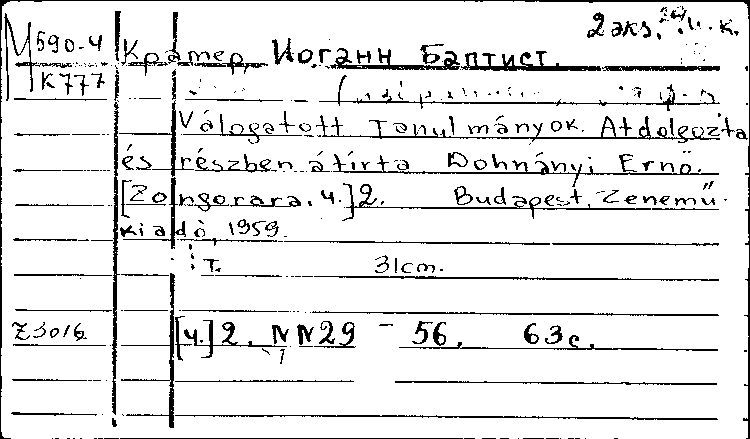 2 экз. и.к.
М590-4 Крамер, Иоганн Баптист.
К777
Válogatott Tanulmányok. Átdolgozta
és részben átírta Dohnányi Ernő.
[Zongorara. ч.]2. Budapest, Zenemű-
kiadó, 1959.
т. 31cm.
Z3016 [ч.]2. NN29 – 56. 63с.